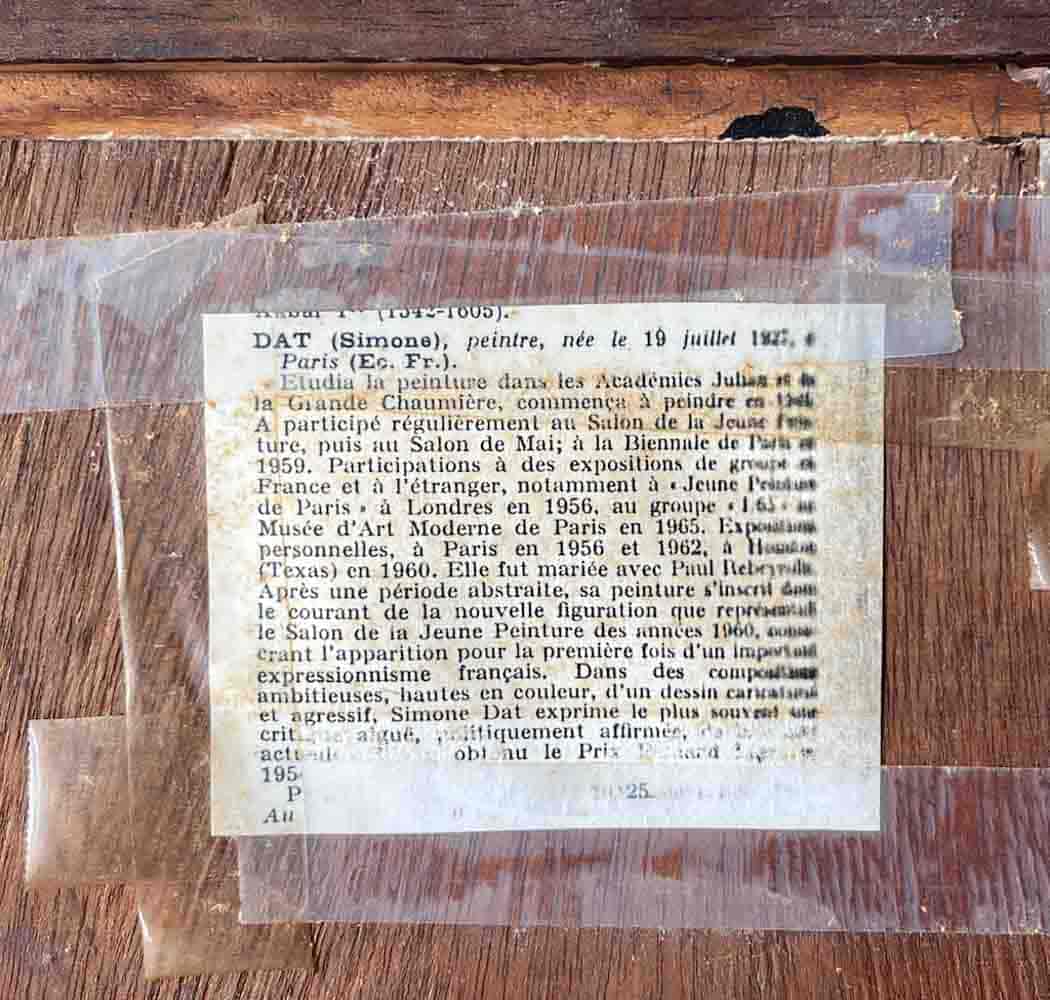 (1542-1605).
DAT (Simone), peintre, née le 19 juillet
Paris (Ec. Fr.).
Etudia la peinture dans les Académies Julian et la
la Grande Chaumière, commença à peindre en
A participé régulièrement au Salon de la Jeune Pein-
ture, puis au Salon de Mai; à la Biennale de Paris en
1959. Participations à des expositions de groupe en
France et à l'étranger, notamment à « Jeune Peinture
de Paris » à Londres en 1956, au groupe au
Musée d'Art Moderne de Paris en 1965. Expositions
personnelles, à Paris en 1956 et 1962, à Houston
(Texas) en 1960. Elle fut mariée avec Paul Rebeyrolle.
Après une période abstraite, sa peinture s'inscrit dans
le courant de la nouvelle figuration que représentait
le Salon de la Jeune Peinture des années 1960,
crant l'apparition pour la première fois d'un important
expressionnisme français. Dans des compositions
ambitieuses, hautes en couleur, d'un dessin caricatural
et agressif, Simone Dat exprime le plus souvent une
aiguë, politiquement affirmée,
obtenu le Prix
195
P
Au